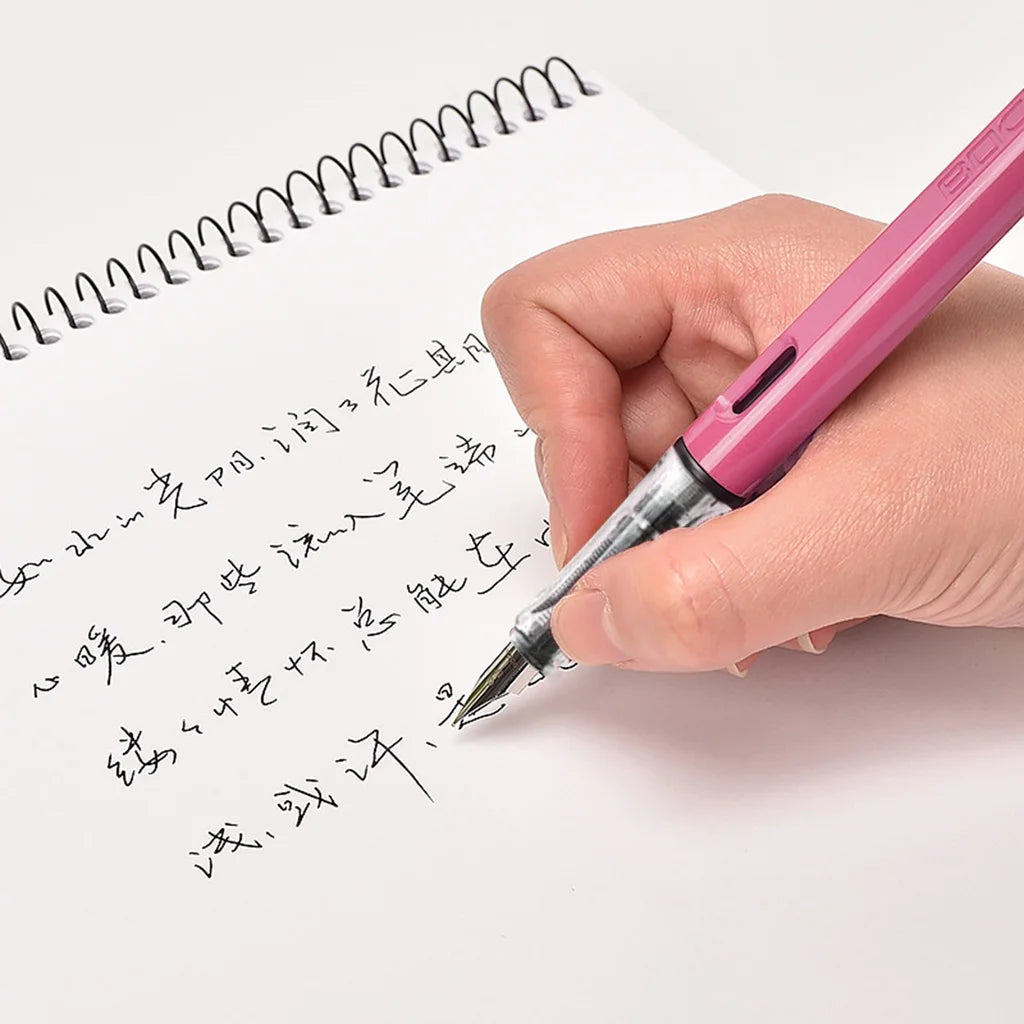 如水的光阴,润了花其月
心暖,那些流入笔端
缕々情怀总能在
浅,或许、是
BOC